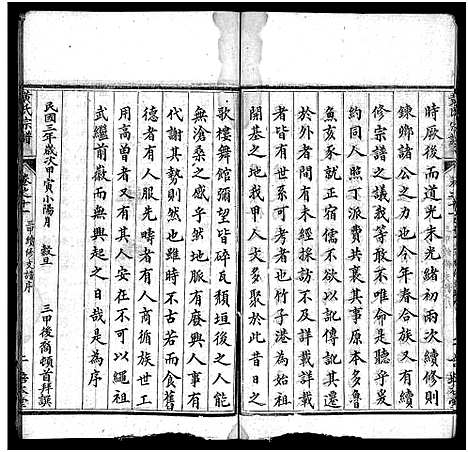 時厥後而道光末光緒初兩次續修則
鍊鄉諸公之力也今年春合族人士倡
修宗譜之議我三甲亦不唯命是聽乎爰
約同人照丁派費共襄是舉然而魯魚
亥豕就正宿儒不欲以訛傳訛其遷
於外者間有未經採訪不及詳載詳載
者皆世系可考者也竹子港為始祖
開基之地我甲人文多聚於此昔日之
歌樓舞館彌望皆碎瓦頹垣後之人能
無滄桑之感乎然地脈有廢興人事有
代謝其勢則然也雖時不古若而食舊
德者有人服先疇者有人商循族世工
用高曾者又有其人安在不可以繩祖
武繼前徽而無興起之日哉是為序
民國三年歲次甲寅小陽月 穀旦
三甲後裔頓首拜譔
黃氏宗譜
三甲續修支譜序